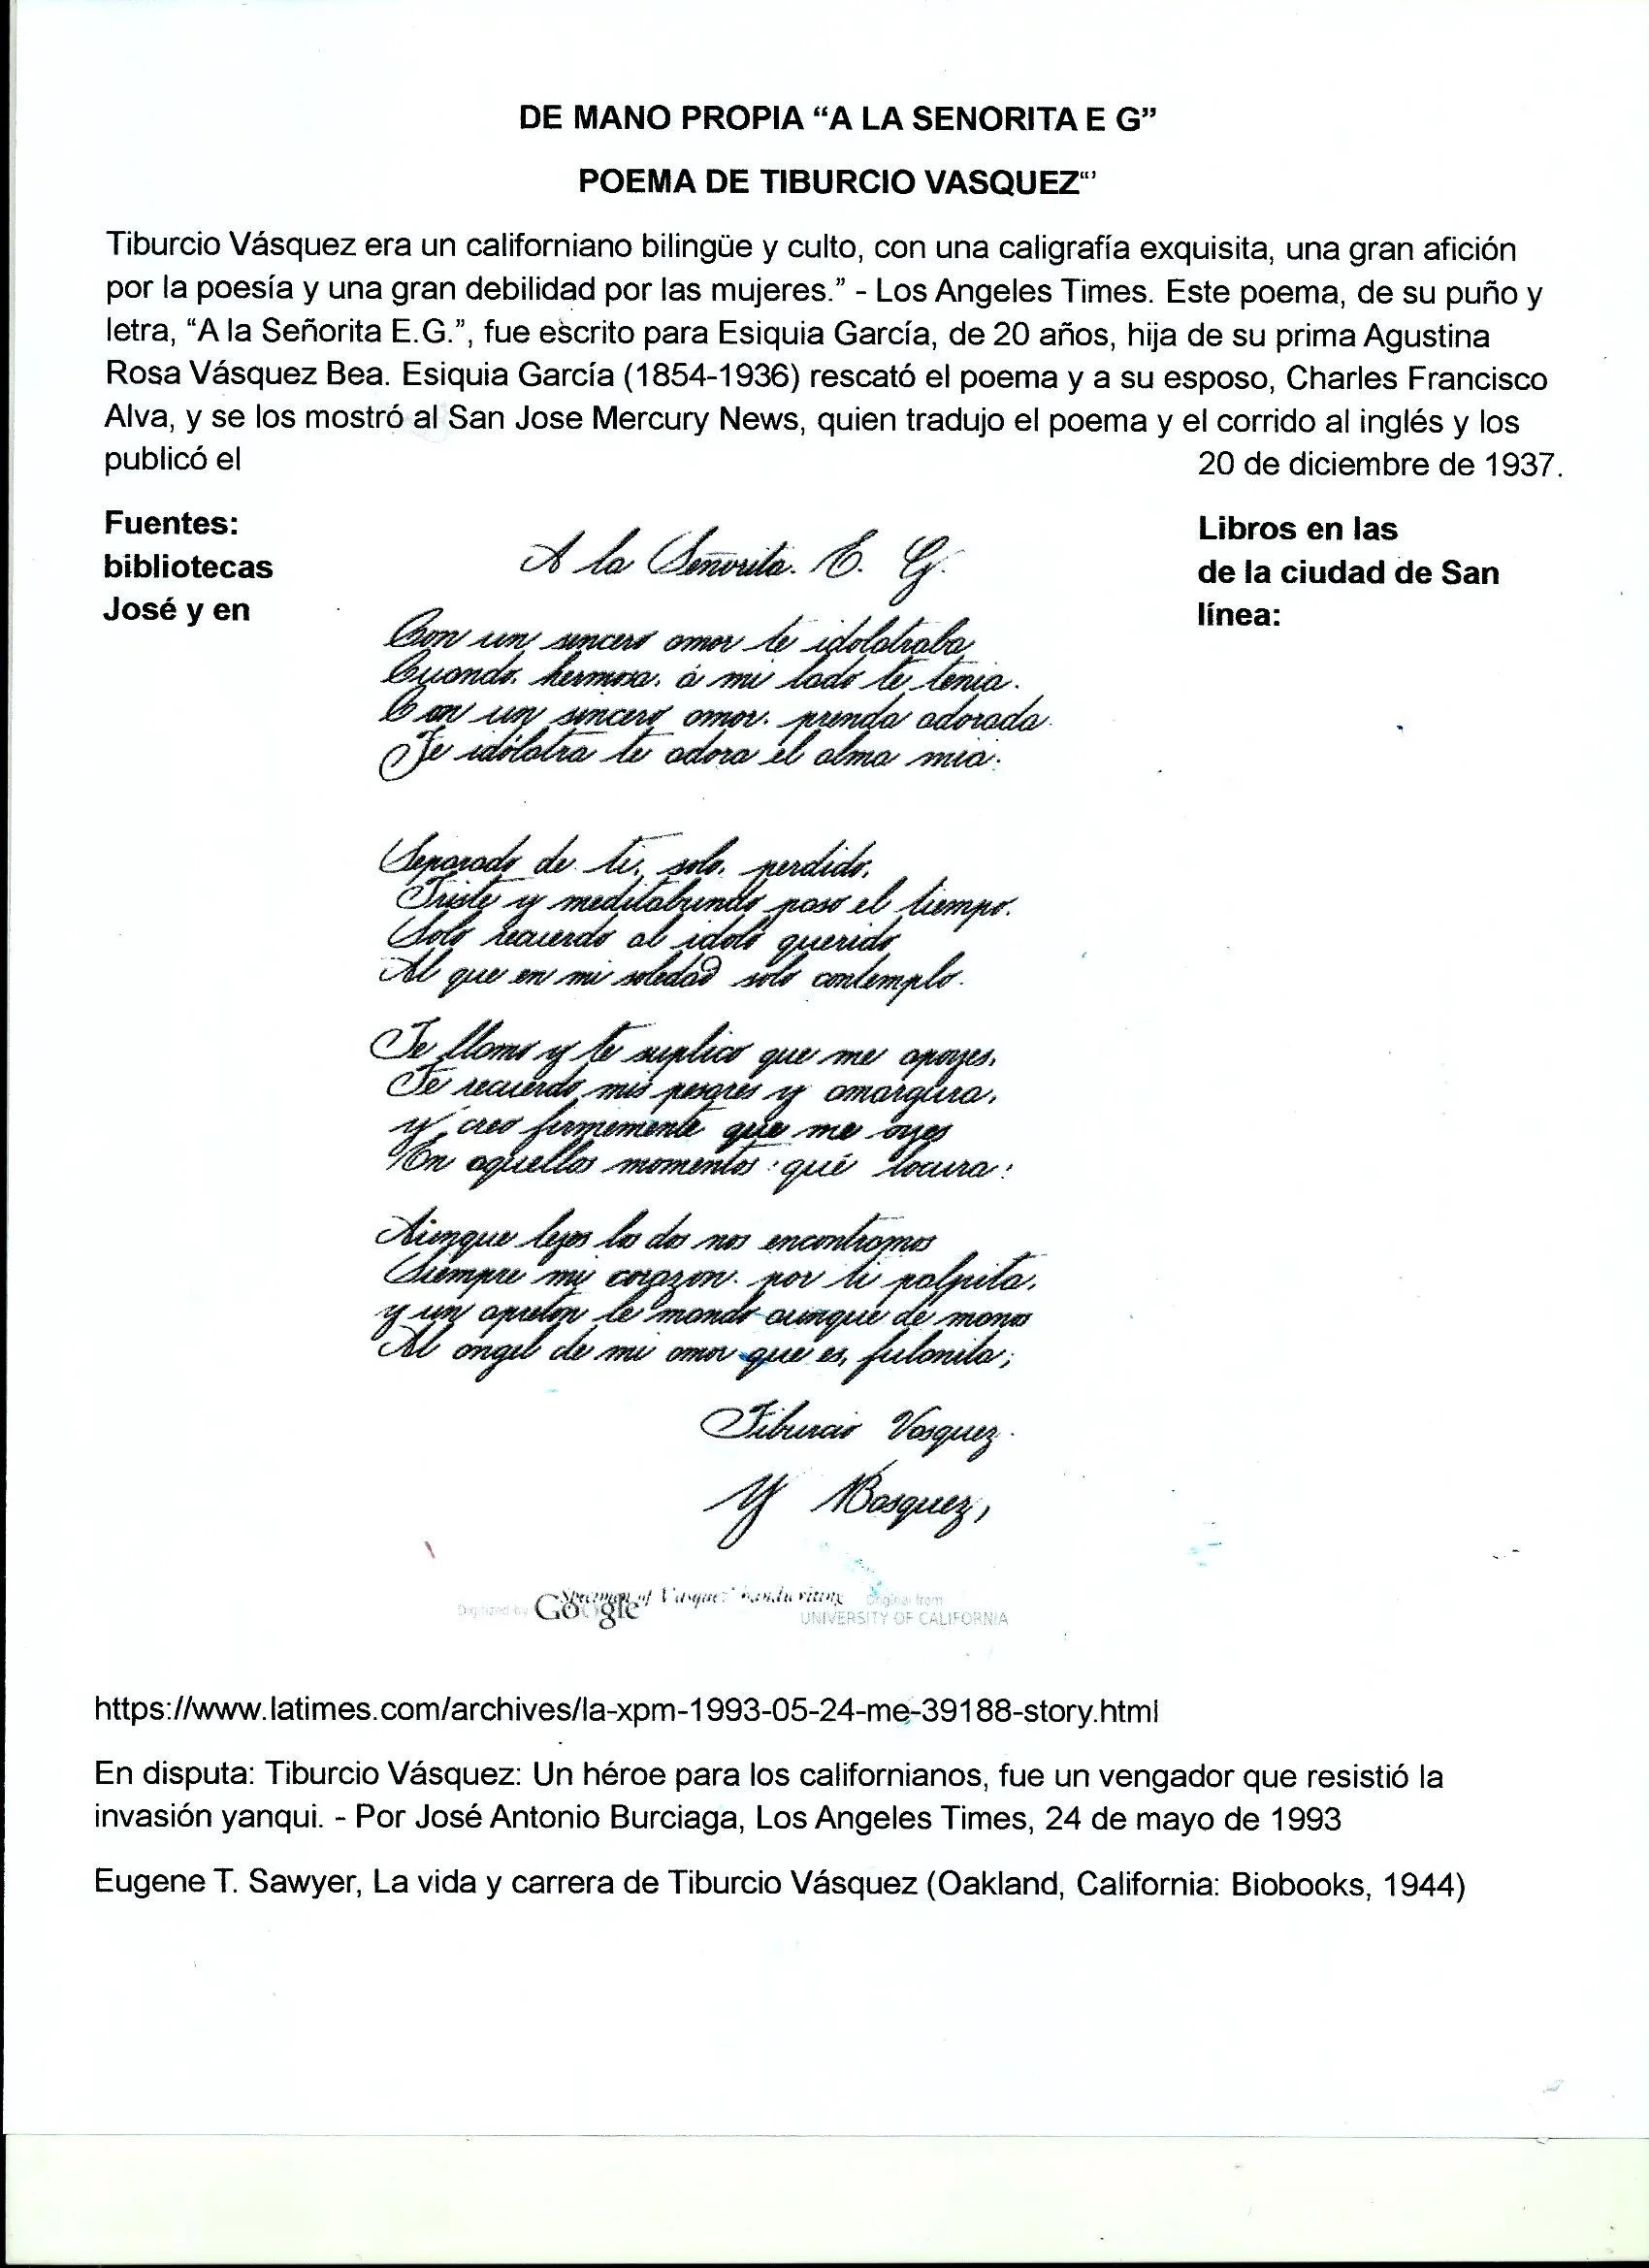 DE MANO PROPIA “A LA SENORITA E G”
POEMA DE TIBURCIO VASQUEZ“’
Tiburcio Vásquez era un californiano bilingüe y culto, con una caligrafía exquisita, una gran afición
por la poesía y una gran debilidad por las mujeres.” - Los Angeles Times. Este poema, de su puño y
letra, “A la Señorita E.G.”, fue escrito para Esiquia García, de 20 años, hija de su prima Agustina
Rosa Vásquez Bea. Esiquia García (1854-1936) rescató el poema y a su esposo, Charles Francisco
Alva, y se los mostró al San Jose Mercury News, quien tradujo el poema y el corrido al inglés y los
publicó el 20 de diciembre de 1937.
Fuentes: Libros en las
bibliotecas de la ciudad de San
José y en línea:
A la Señorita. E. G.
Con un sincero amor te idolatraba
Cuando, hermosa, á mi lado te tenia.
Con un sincero amor, prenda adorada.
Te idólatra te adora el alma mia.
Separado de ti, solo, perdido,
Triste y meditabundo paso el tiempo.
Solo recuerdo al idolo querido
Al que en mi soledad solo contemplo.
Te llamo y te suplico que me apoyes,
Te recuerdo mis pesares y amargura,
y creo firmemente que me oyes
En aquellos momentos: qué locura:
Aunque lejos los dos nos encontramos
Siempre mi corazon por ti palpita,
y un apreton te mando aunque de manos
Al angel de mi amor que es, fulanita;
Tiburcio Vasquez.
Y Bosquez,
Specimen of Vasquez' handwriting
Digitized by Google
Original from
UNIVERSITY OF CALIFORNIA
https://www.latimes.com/archives/la-xpm-1993-05-24-me-39188-story.html
En disputa: Tiburcio Vásquez: Un héroe para los californianos, fue un vengador que resistió la
invasión yanqui. - Por José Antonio Burciaga, Los Angeles Times, 24 de mayo de 1993
Eugene T. Sawyer, La vida y carrera de Tiburcio Vásquez (Oakland, California: Biobooks, 1944)